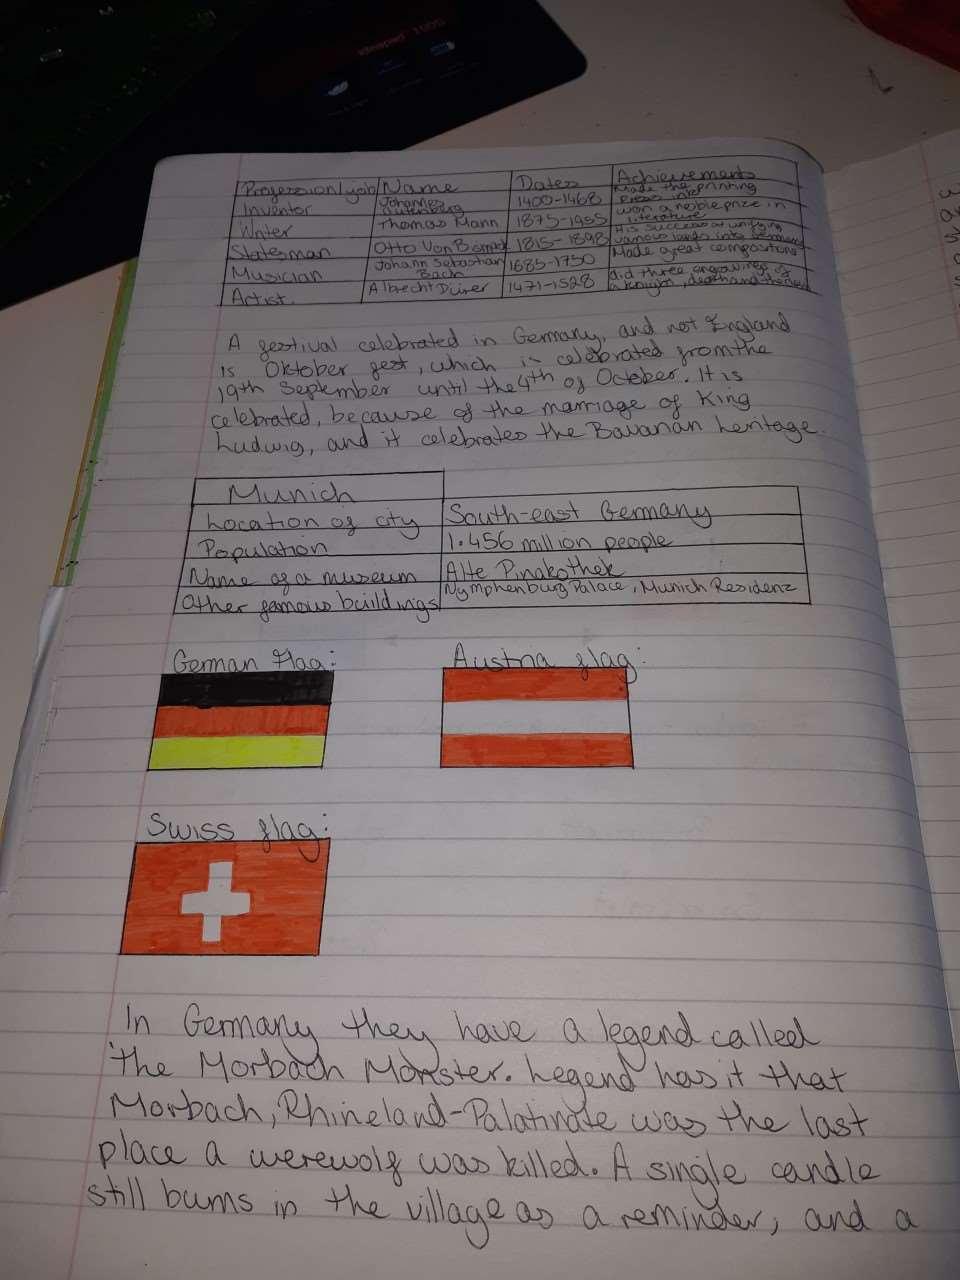 ideapad 100S
Profession/job Name Dates Achievements
Inventor Johannes Gutenberg 1400-1468 Made the printing press ink
Writer Thomas Mann 1875-1955 won a noble prize in literature
Statesman Otto Von Bismark 1815-1898 His success at unifying various lands into Germany
Musician Johann Sebastian Bach 1685-1750 Made great compositions
Artist. Albrecht Dürer 1471-1528 did three engravings of a knight, death and the devil
A festival celebrated in Germany, and not England
is Oktober fest, which is celebrated from the
19th September until the 4th of October. It is
celebrated, because of the marriage of King
Ludwig, and it celebrates the Bavarian heritage.
Munich
Location of city South-east Germany
Population 1.456 million people
Name of a museum Alte Pinakothek
Other famous buildings Nymphenburg Palace, Munich Residenz
German Flag: Austria flag:
Swiss flag:
In Germany they have a legend called
the Morbach Monster. Legend has it that
Morbach, Rhineland-Palatinate was the last
place a werewolf was killed. A single candle
still burns in the village as a reminder, and a